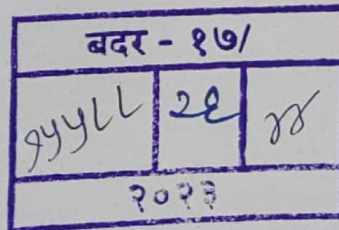 बदर - १७/
१५५८८ ४४
२०२३